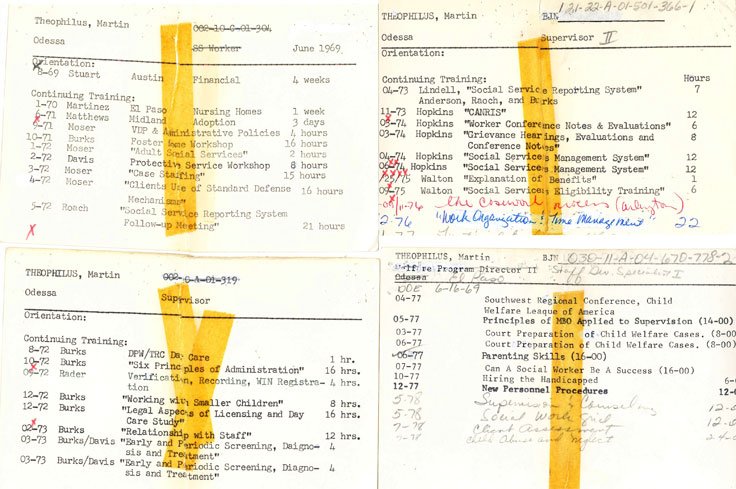 THEOPHILUS, Martin
002-10-C-01-304
Odessa
SS Worker June 1969
Orientation:
8-69 Stuart Austin Financial 4 weeks
Continuing Training:
1-70 Martinez El Paso Nursing Homes 1 week
8-71 Matthews Midland Adoption 3 days
9-71 Moser VDP & Administrative Policies 4 hours
10-71 Burks Foster Home Workshop 16 hours
1-72 Moser "Adult Social Services" 2 hours
2-72 Davis Protective Service Workshop 8 hours
3-72 Moser "Case Staffing" 15 hours
4-72 "Clients Use of Standard Defense 16 hours
Mechanisms"
5-72 Roach "Social Service Reporting System
Follow-up Meeting" 21 hours
X
THEOPHILUS, Martin BJN 121-22-A-01-501-366-1
Odessa Supervisor II
Orientation:
Continuing Training: Hours
04-73 Lindell, "Social Service Reporting System" 7
Anderson, Raoch, and Burks
11-73 Hopkins "CANRIS" 12
03-74 Hopkins "Worker Conference Notes & Evaluations" 6
03-74 Hopkins "Grievance Hearings, Evaluations and 8
Conference Notes"
04-74 Hopkins "Social Services Management System" 12
06-74 Hopkins "Social Services Management System" 12
/25/75 Walton "Explanation of Benefits" 1
09-75 Walton "Social Services Eligibility Training" 6
/11-76 the casework process (Arlington)
2-76 "Work Organization & Time Management" 22
THEOPHILUS, Martin 002-0-A-01-319
Odessa Supervisor
Orientation:
Continuing Training:
8-72 Burks DPW/TRC Day Care 1 hr.
10-72 Burks "Six Principles of Administration" 16 hrs.
09-72 Rader Verification, Recording, WIN Registra- 4 hrs.
tion
12-72 Burks "Working with Smaller Children" 8 hrs.
12-72 Burks "Legal Aspects of Licensing and Day 16 hrs.
Care Study"
02-73 Burks "Relationship with Staff" 12 hrs.
03-73 Burks/Davis "Early and Periodic Screening, Daigno- 4
sis and Treatment"
03-73 Burks/Davis "Early and Periodic Screening, Diagno- 4
sis and Treatment"
THEOPHILUS, Martin BJN 030-11-A-04-670-778-2
Welfare Program Director II Staff Dev. Specialist I
Odessa El Paso
DOE 6-16-69
04-77 Southwest Regional Conference, Child
Welfare League of America
05-77 Principles of MBO Applied to Supervision (14-00)
03-77 Court Preparation of Child Welfare Cases. (8-00)
06-77 Court Preparation of Child Welfare Cases. (8-00)
06-77 Parenting Skills (16-00)
07-77 Can A Social Worker Be A Success (16-00)
10-77 Hiring the Handicapped 6-
12-77 New Personnel Procedures 12-0
5-78 Supervision & Counseling 12-0
5-78 Social Work Grid 12-
7-78 Client Assessment 12-0
7-78 Child Abuse and Neglect 24-0